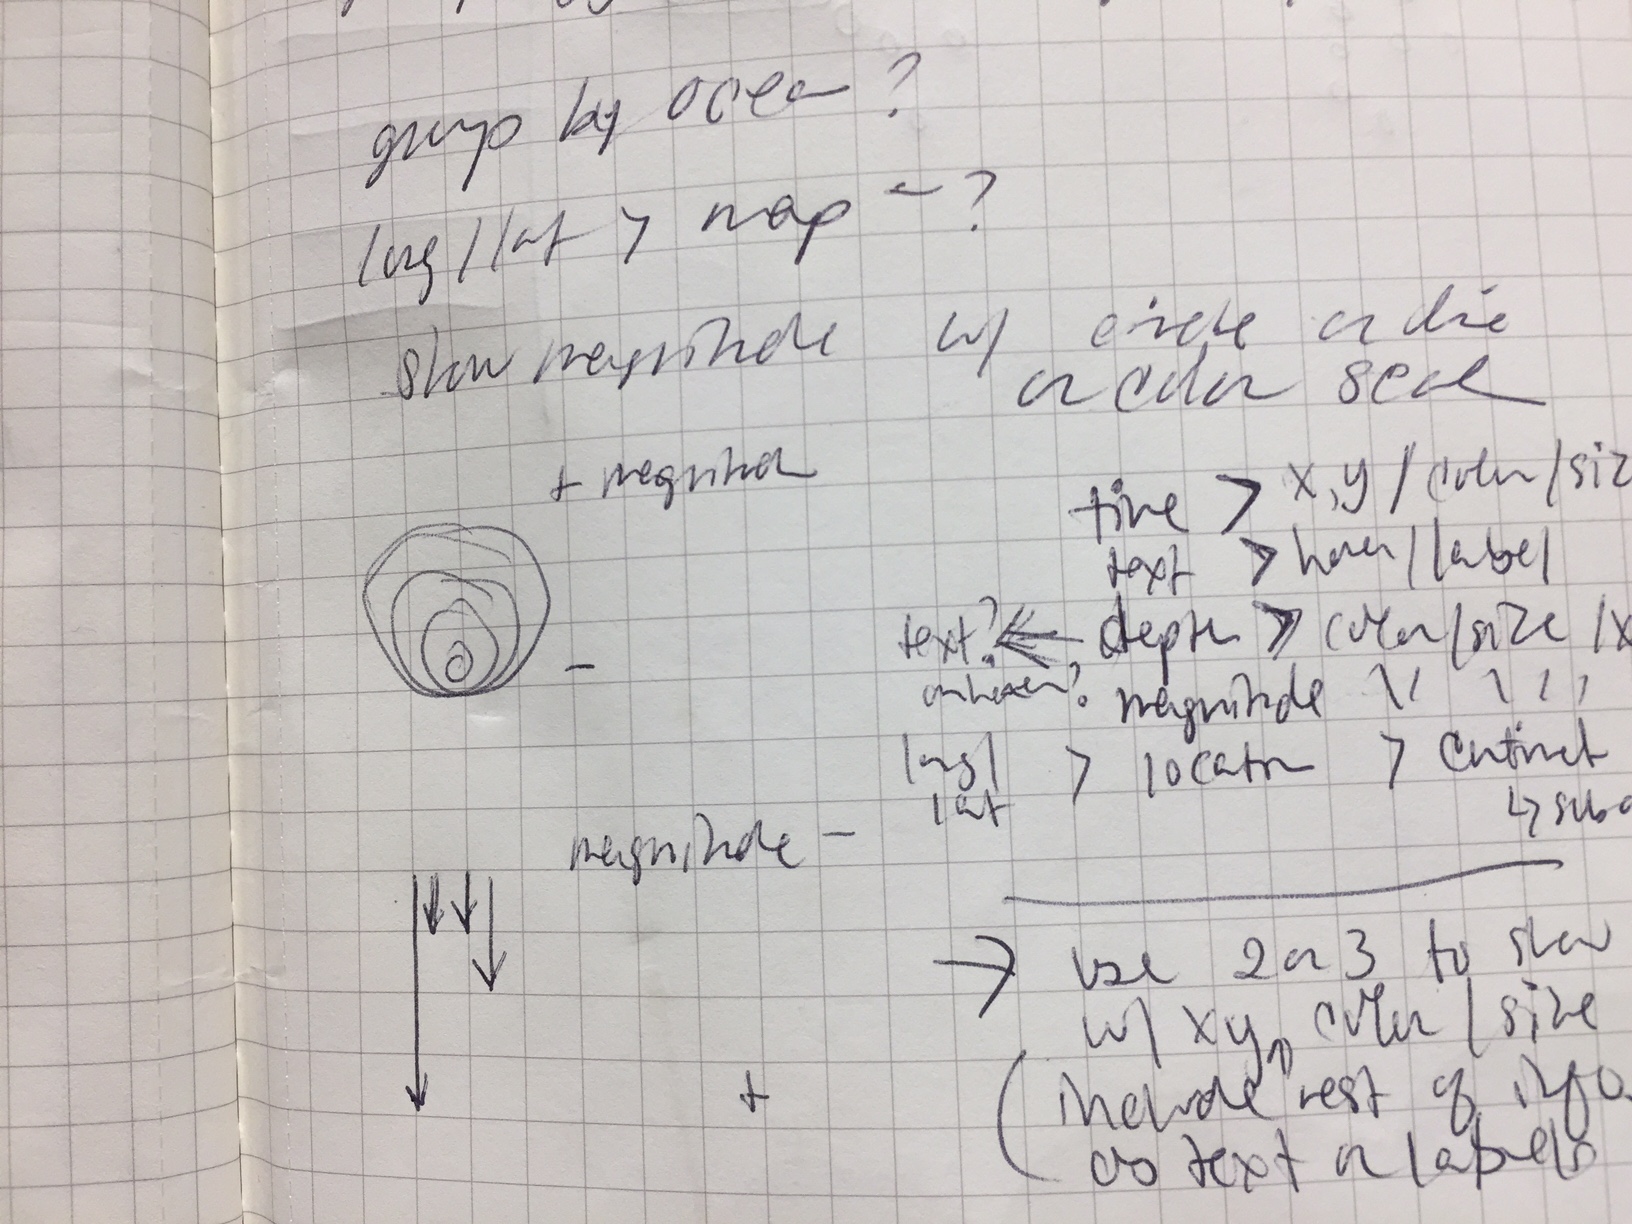 group by ocean ?
long/lat > map - ?
show magnitude w/ circle or line
or color scale
+ magnitude
-
time > x,y / color / siz
text > hover / label
text? depth > color / size / x
on hover? magnitude \\ / \ \ \
long/ > location >
lat
↳
magnitude -
+
→ use 2 or 3 to show
w/ xy, color / size
(include rest of info
as text or labels